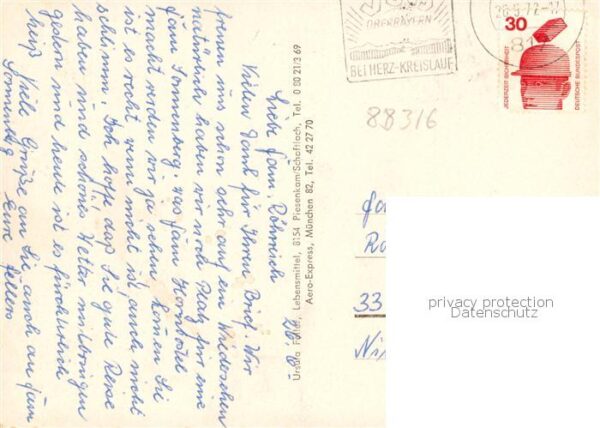 OBERBAYERN
BEI HERZ-KREISLAUF
26.6.72-17
81
30
JEDERZEIT SICHERHEIT
DEUTSCHE BUNDESPOST
88316
26.6.
Liebe Fam. Röhmisch
Vielen Dank für Ihren Brief. Wir
freuen uns schon sehr auf ein Wiedersehen
natürlich haben wir noch Platz für eine
Fam. Sonnenberg. was Fam.
macht werden wir ja sehen, können Sie
ist es recht wenn nicht ist auch nicht
schlimm. Ich hoffe daß Sie gute Reise
haben und schönes Wetter mitbringen
gestern und heute ist es fürchterlich
heiß Viele Grüße an Sie, auch an Fam
Sonnenberg Eure
Lebensmittel, 8154 Piesenkam/Schaftlach, Tel. 0 80 21/3 69
Aero-Express, München 82, Tel. 42 27 70
33
privacy protection
Datenschutz